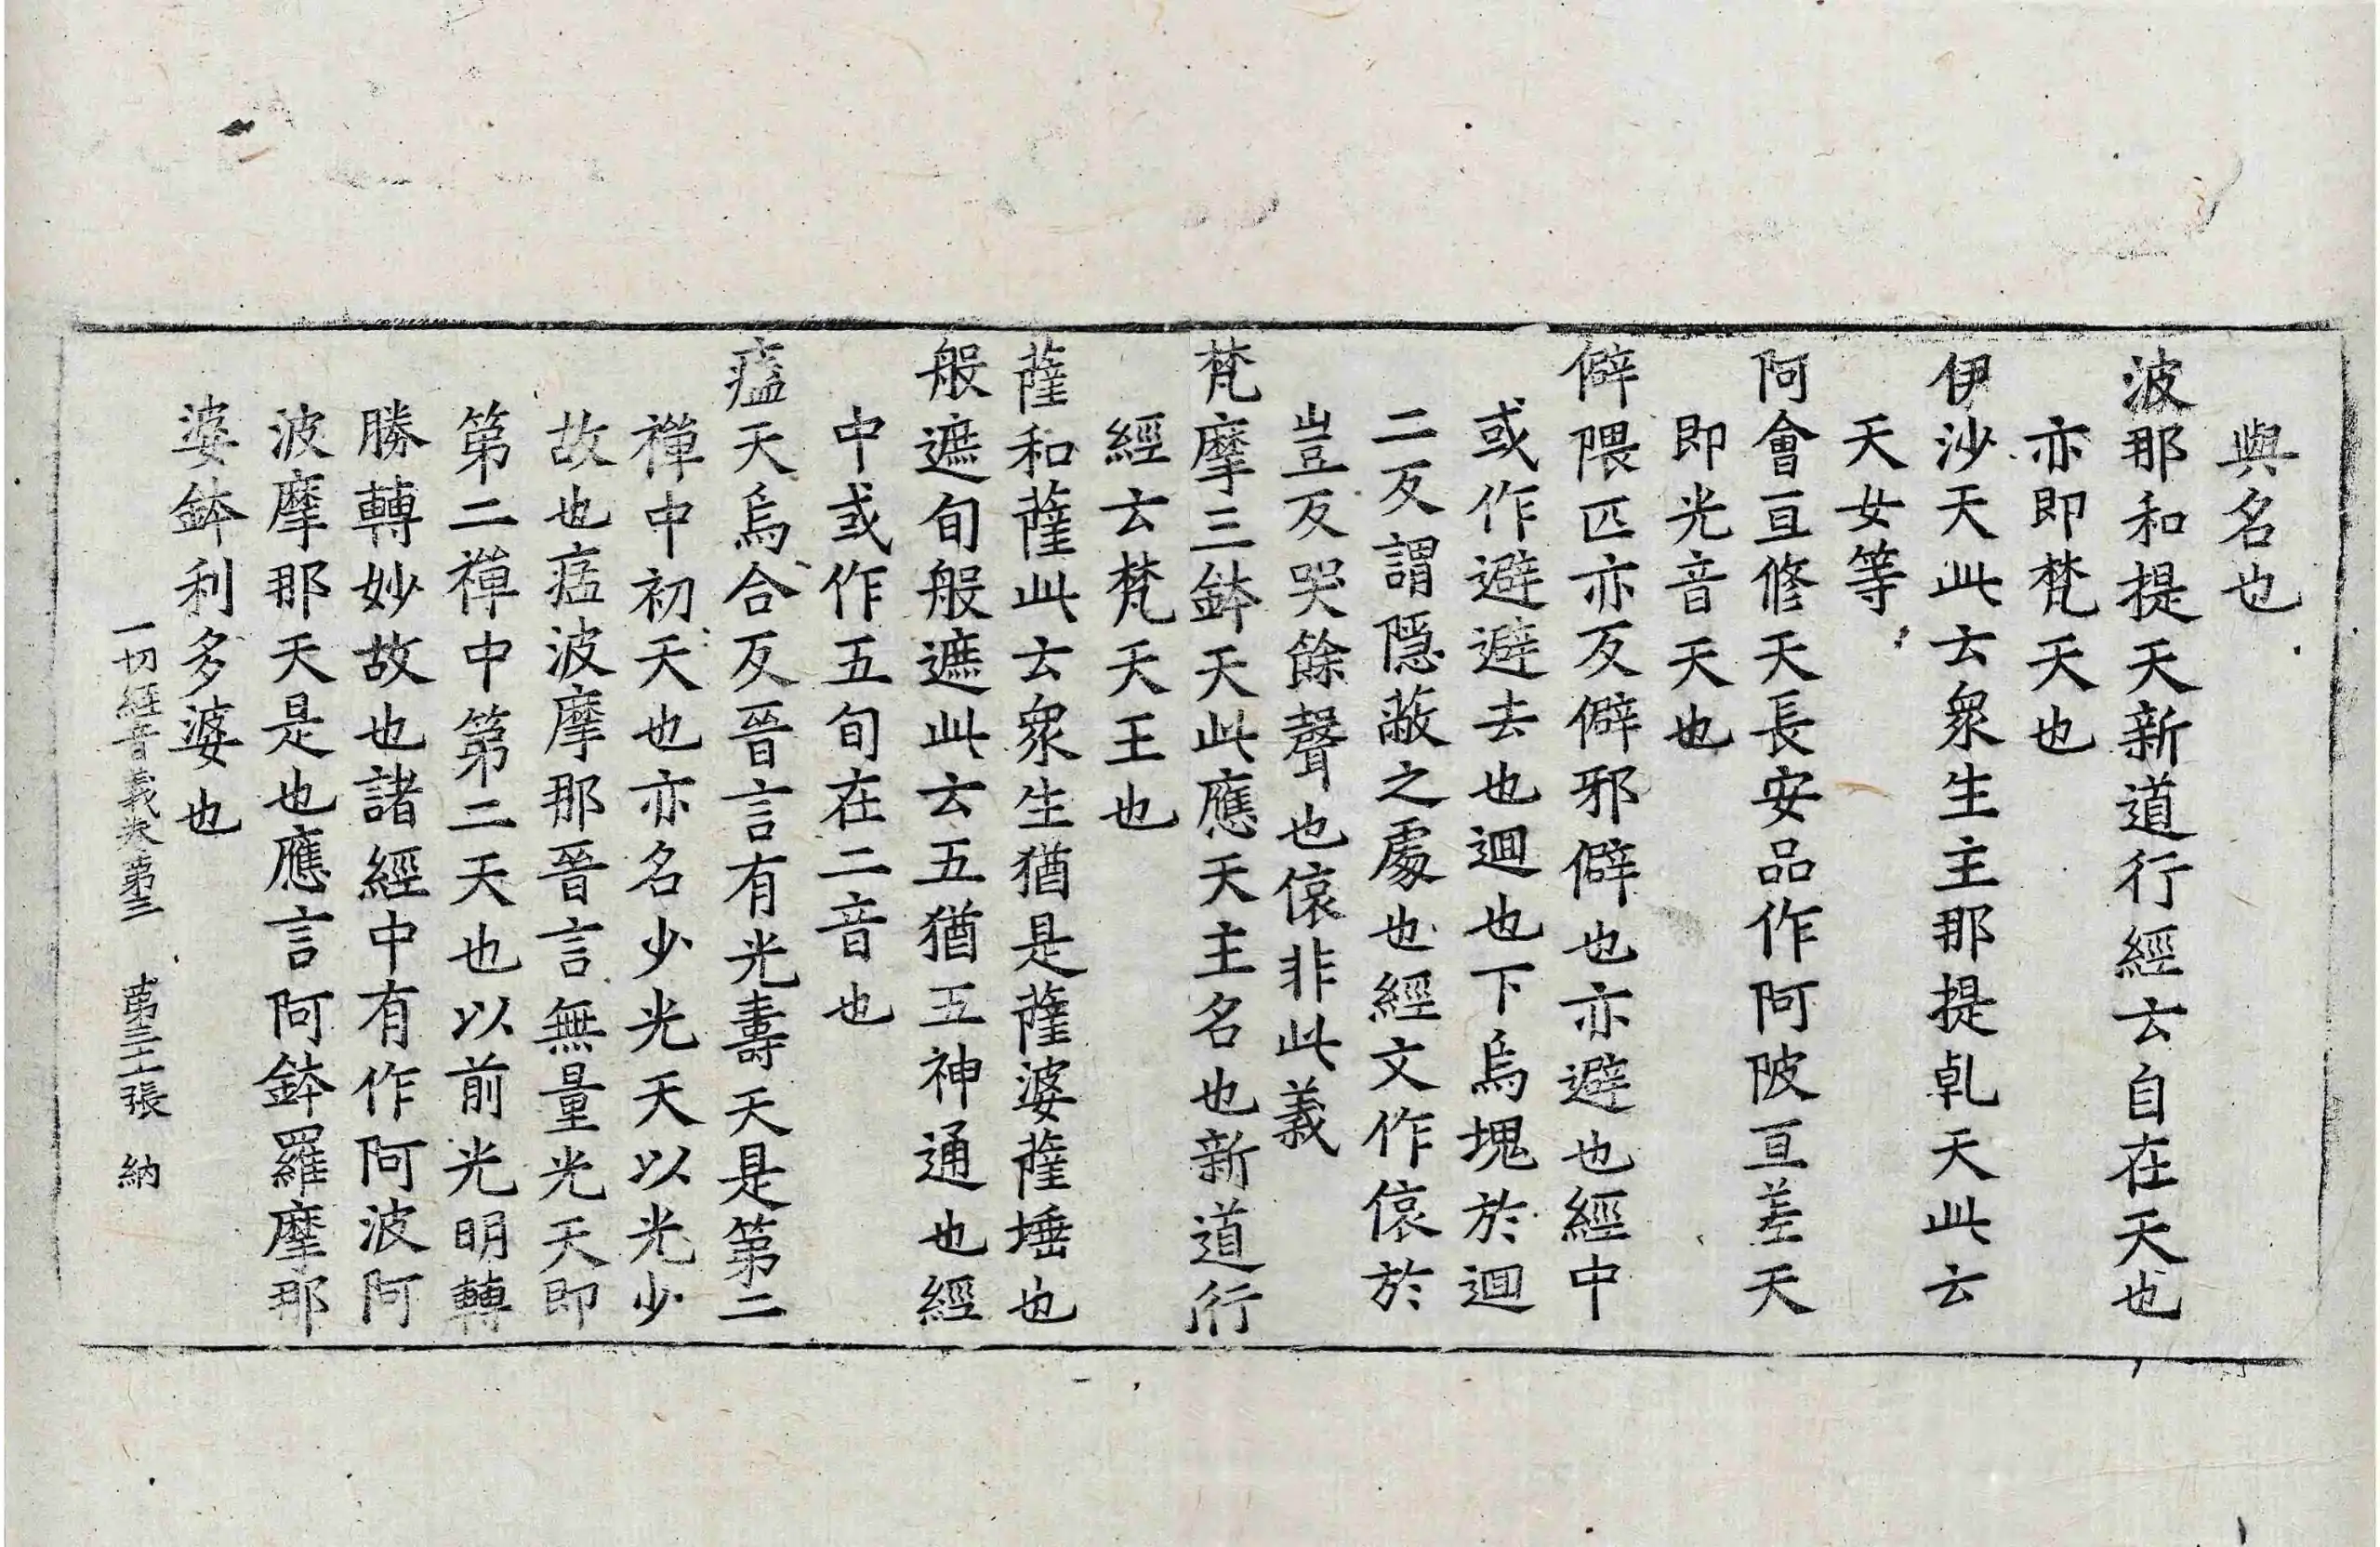 與名也
波那和提天新道行經云自在天也
亦即梵天也
伊沙天此云衆生主那提乹天此云
天女等
阿會亘修天長安品作阿陂亘差天
即光音天也
僻隈匹亦反僻邪僻也亦避也經中
或作避避去也迴也下烏塊於迴
二反謂隱蔽之處也經文作偯於
豈反哭餘聲也偯非此義
梵摩三鉢天此應天主名也新道行
經云梵天王也
薩和薩此云衆生猶是薩婆薩埵也
般遮旬般遮此云五猶五神通也經
中或作五旬在二音也
㿺天烏合反晉言有光壽天是第二
禪中初天也亦名少光天以光少
故也㿺波摩那晉言無量光天即
第二禪中第二天也以前光明轉
勝轉妙故也諸經中有作阿波阿
波摩那天是也應言阿鉢羅摩那
婆鉢利多婆也
一切經音義卷第三 第三十張 納